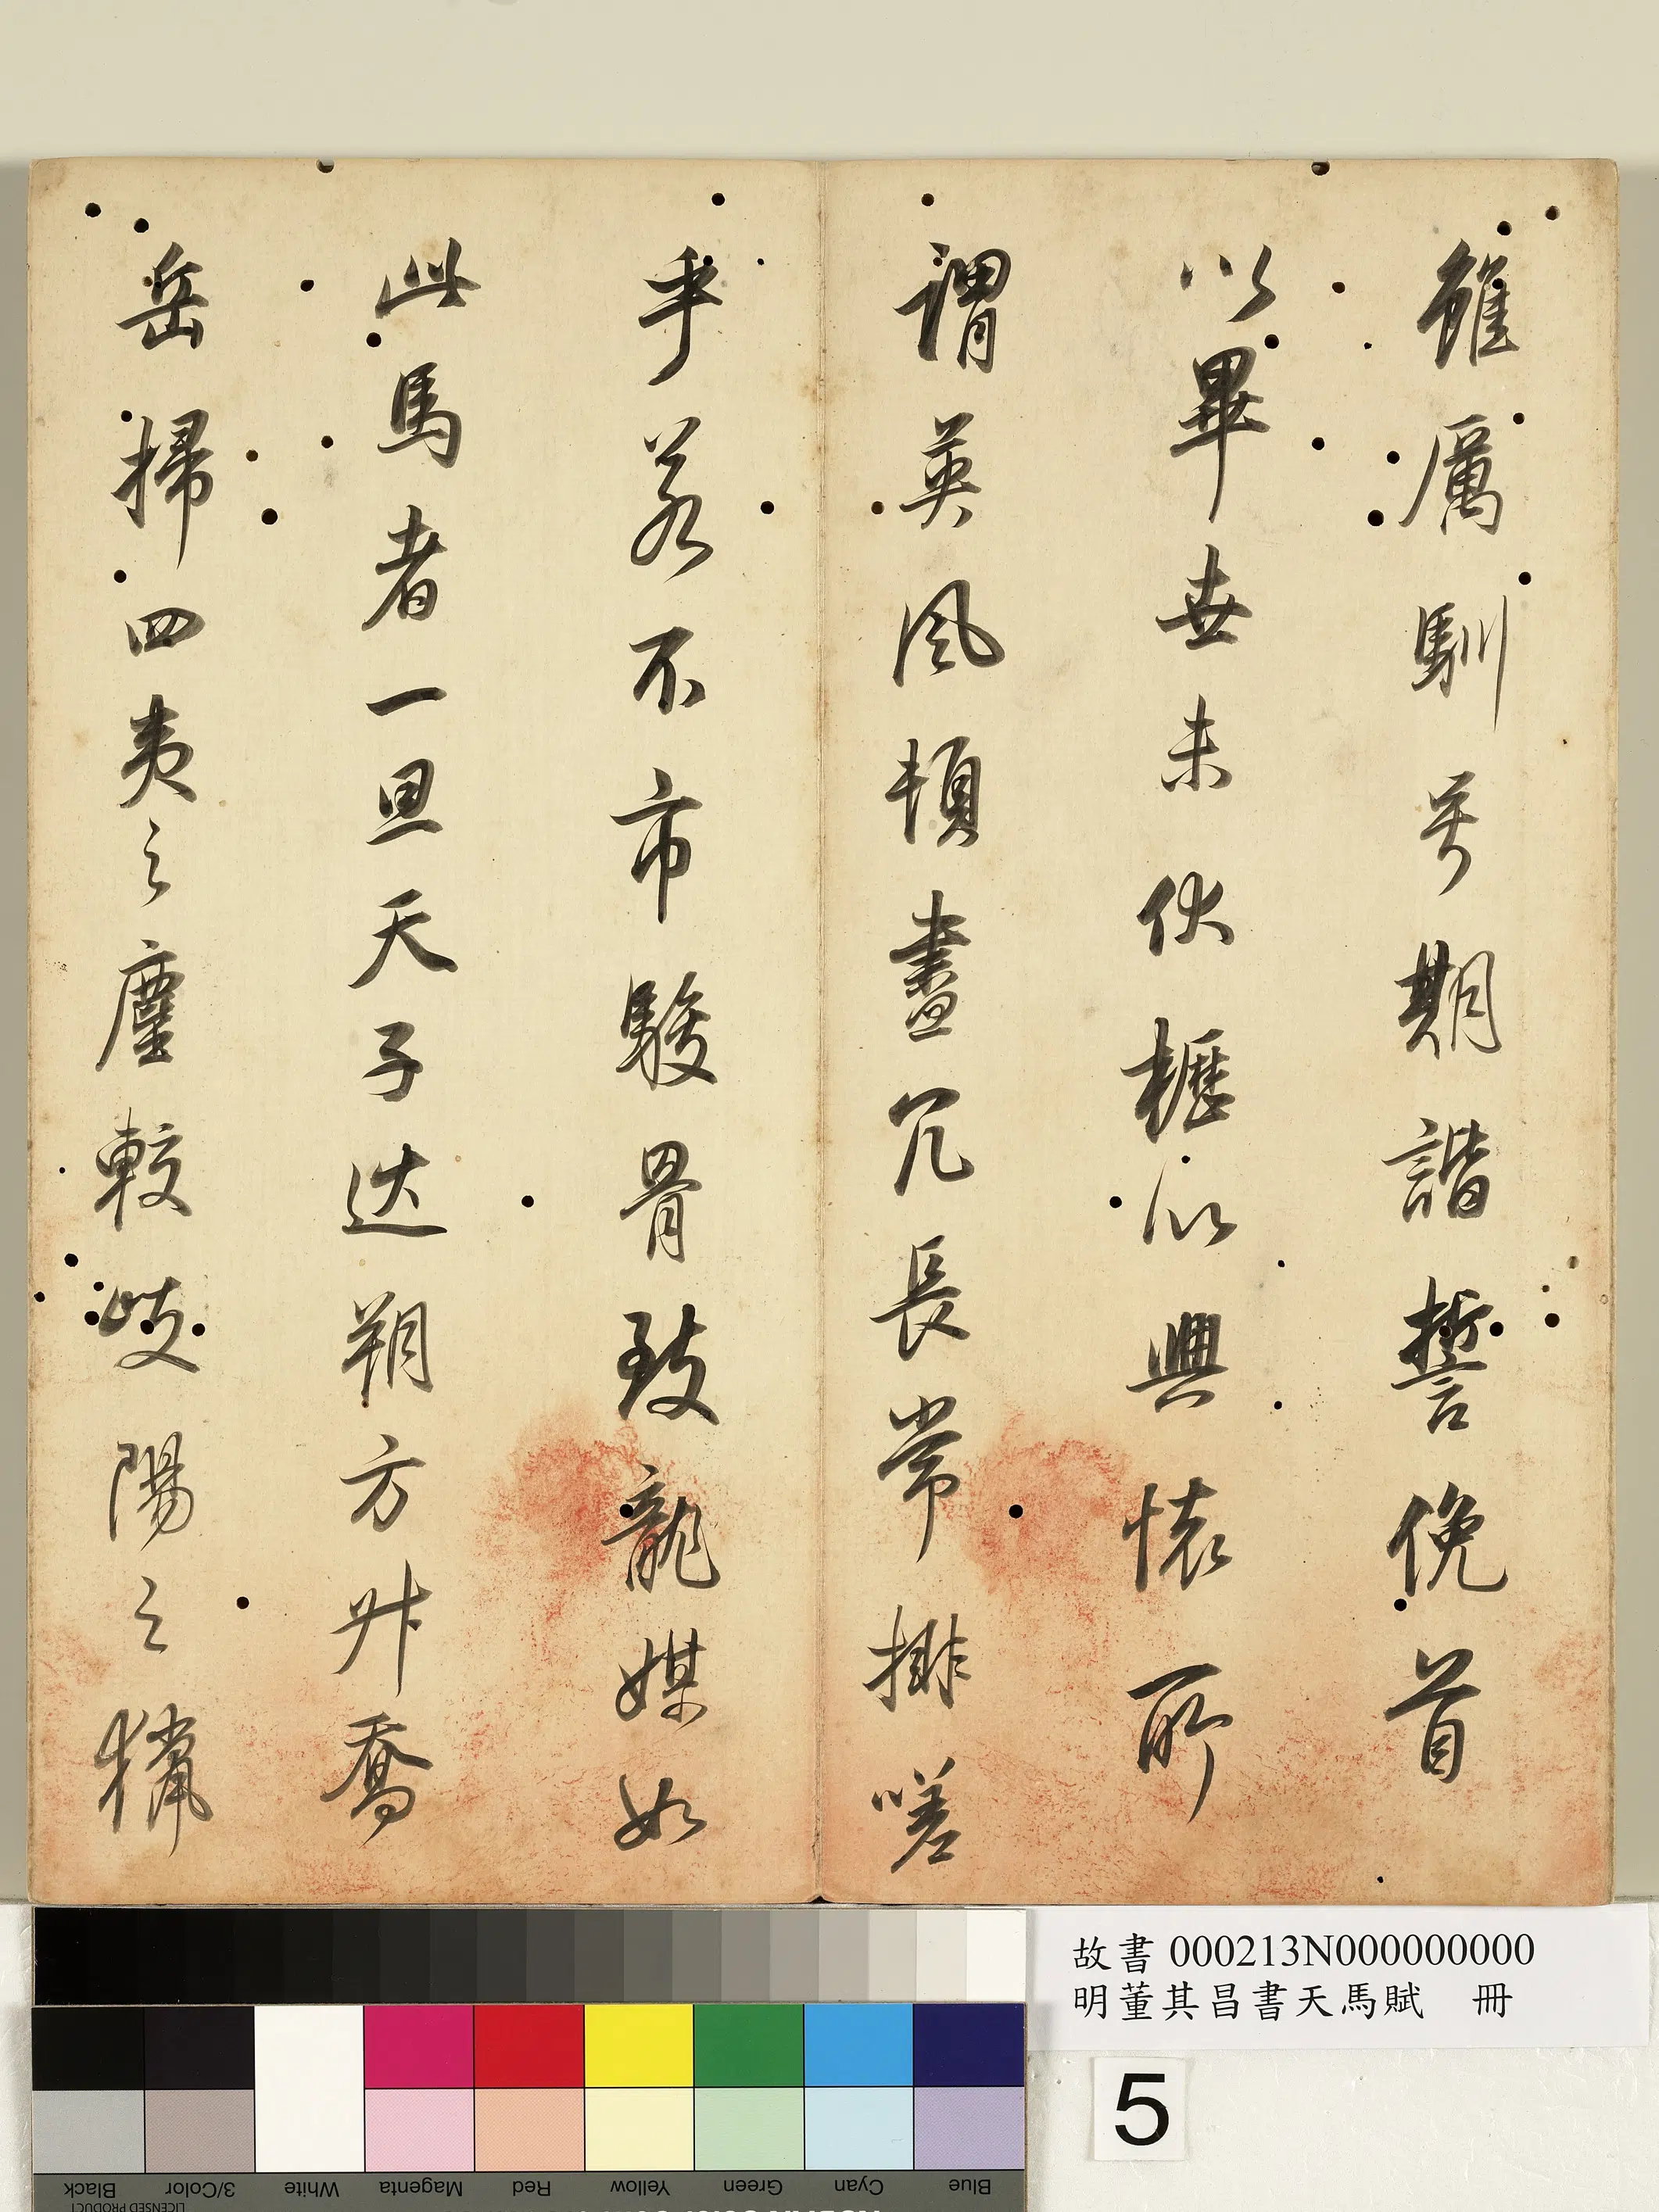 雖厲馴号期諧誓俛首
以畢世未伏櫪以興懷所
謂英風頓盡冗長常排嗟
乎若不市駿骨致龍媒如
此馬者一旦天子巡朔方升喬
岳掃四夷之塵較歧陽之獵
故書 000213N000000000
明董其昌書天馬賦 冊
5
Blue Cyan Green Yellow Red Magenta White 3/Color Black
LICENSED PRODUCT